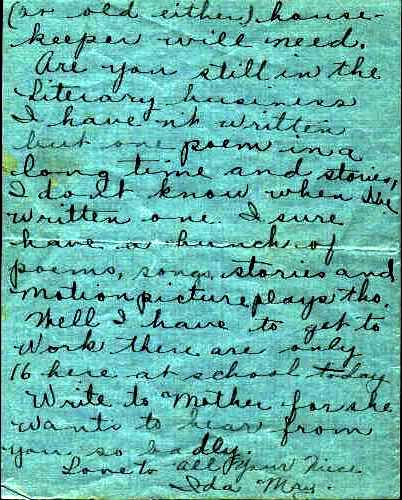 (or old either) house-
keeper will need.
Are you still in the
literary business
I have n't written
but one poem in a
long time and stories,
I don't know when I've
written one. I sure
have a bunch of
poems, songs, stories and
motion picture plays tho.
Well I have to get to
work there are only
16 here at school today
Write to Mother for she
wants to hear from
you so badly.
Love to all Your Niece
Ida May.